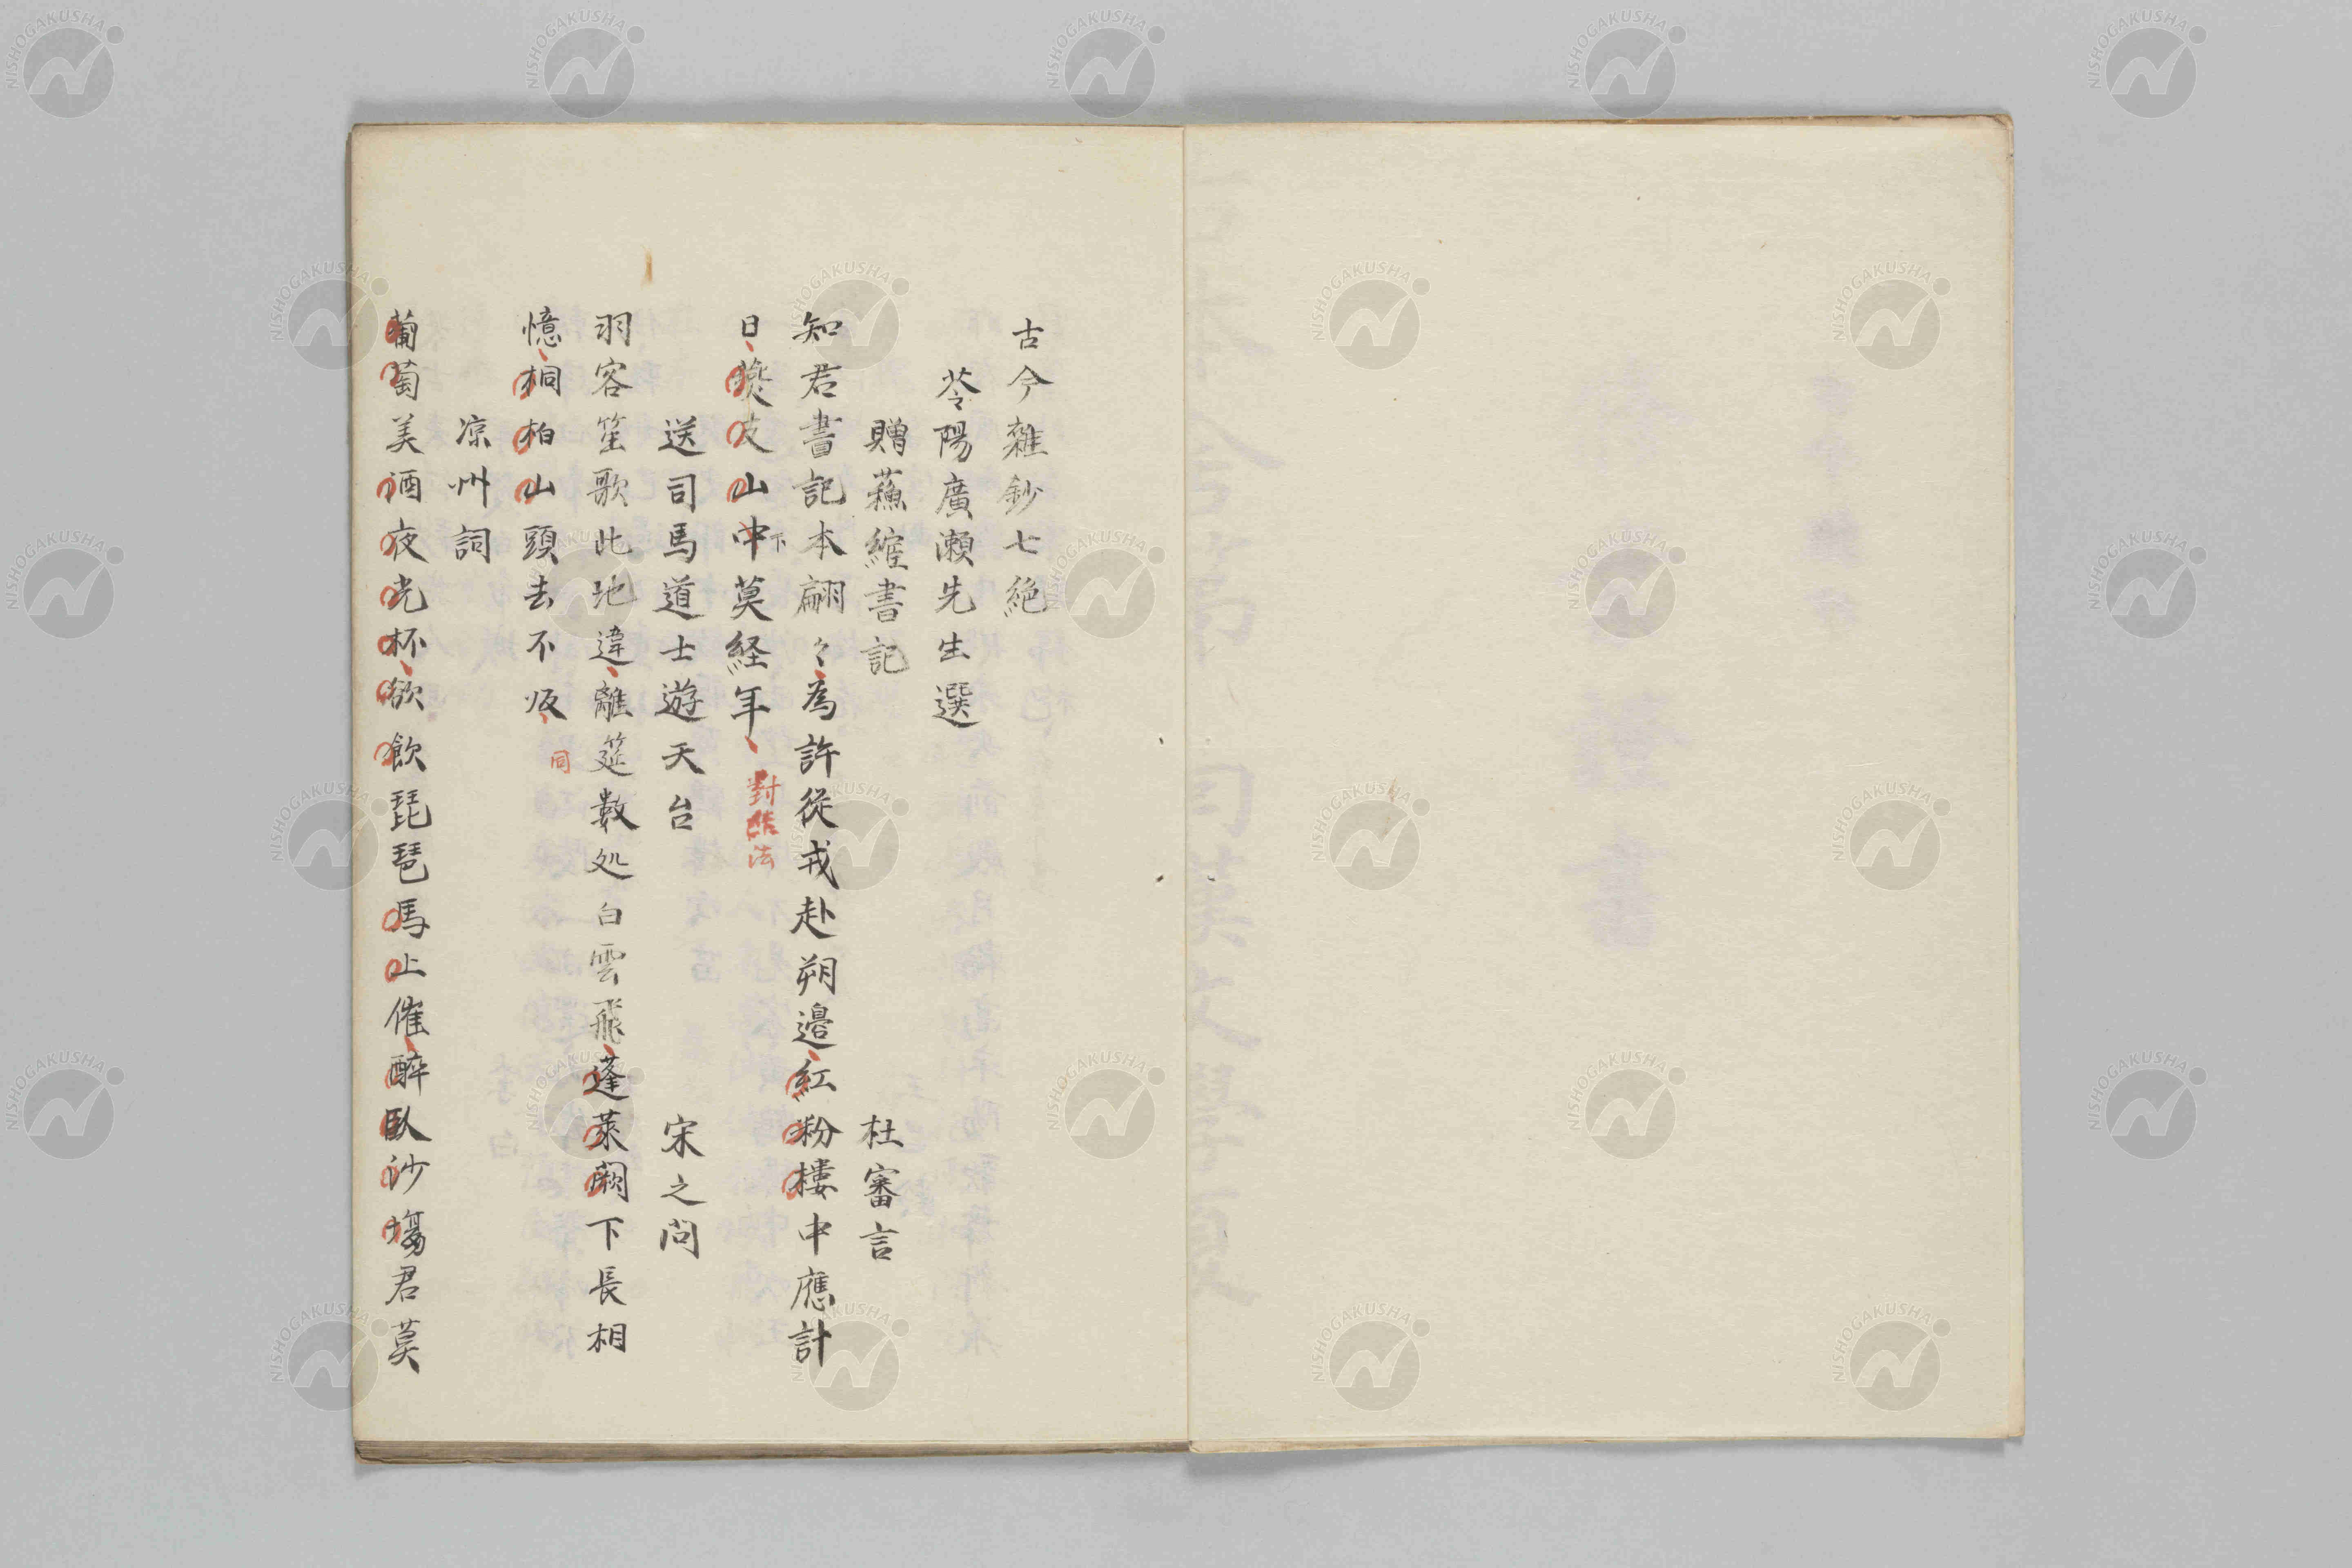 古今雜鈔七絶
苓陽廣瀬先生選
贈蘓綰書記
杜審言
知君書記本翩々為許從戎赴朔邉紅粉樓中應計
日燕支山中莫経年
下
對結法
送司馬道士遊天台
宋之問
羽客笙歌此地違離筵數処白雲飛蓬萊闕下長相
憶桐柏山頭去不皈
同
凉州詞
葡萄美酒夜光杯欲飲琵琶馬上催醉臥沙塲君莫
NISHOGAKUSHA